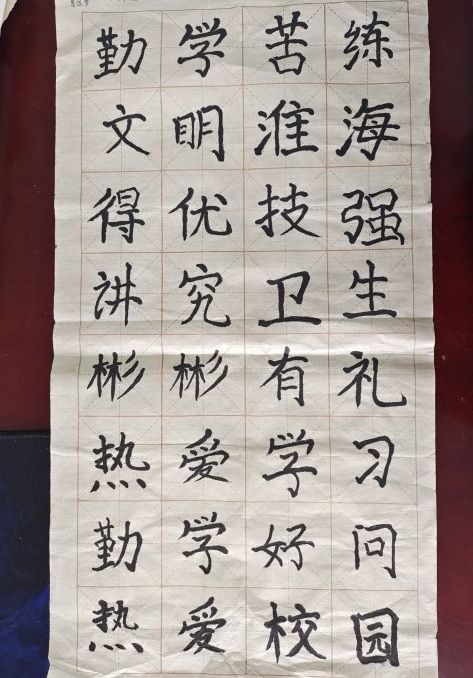 勤学苦练
文明淮海
得优技强
讲究卫生
彬彬有礼
热爱学习
勤学好问
热爱校园